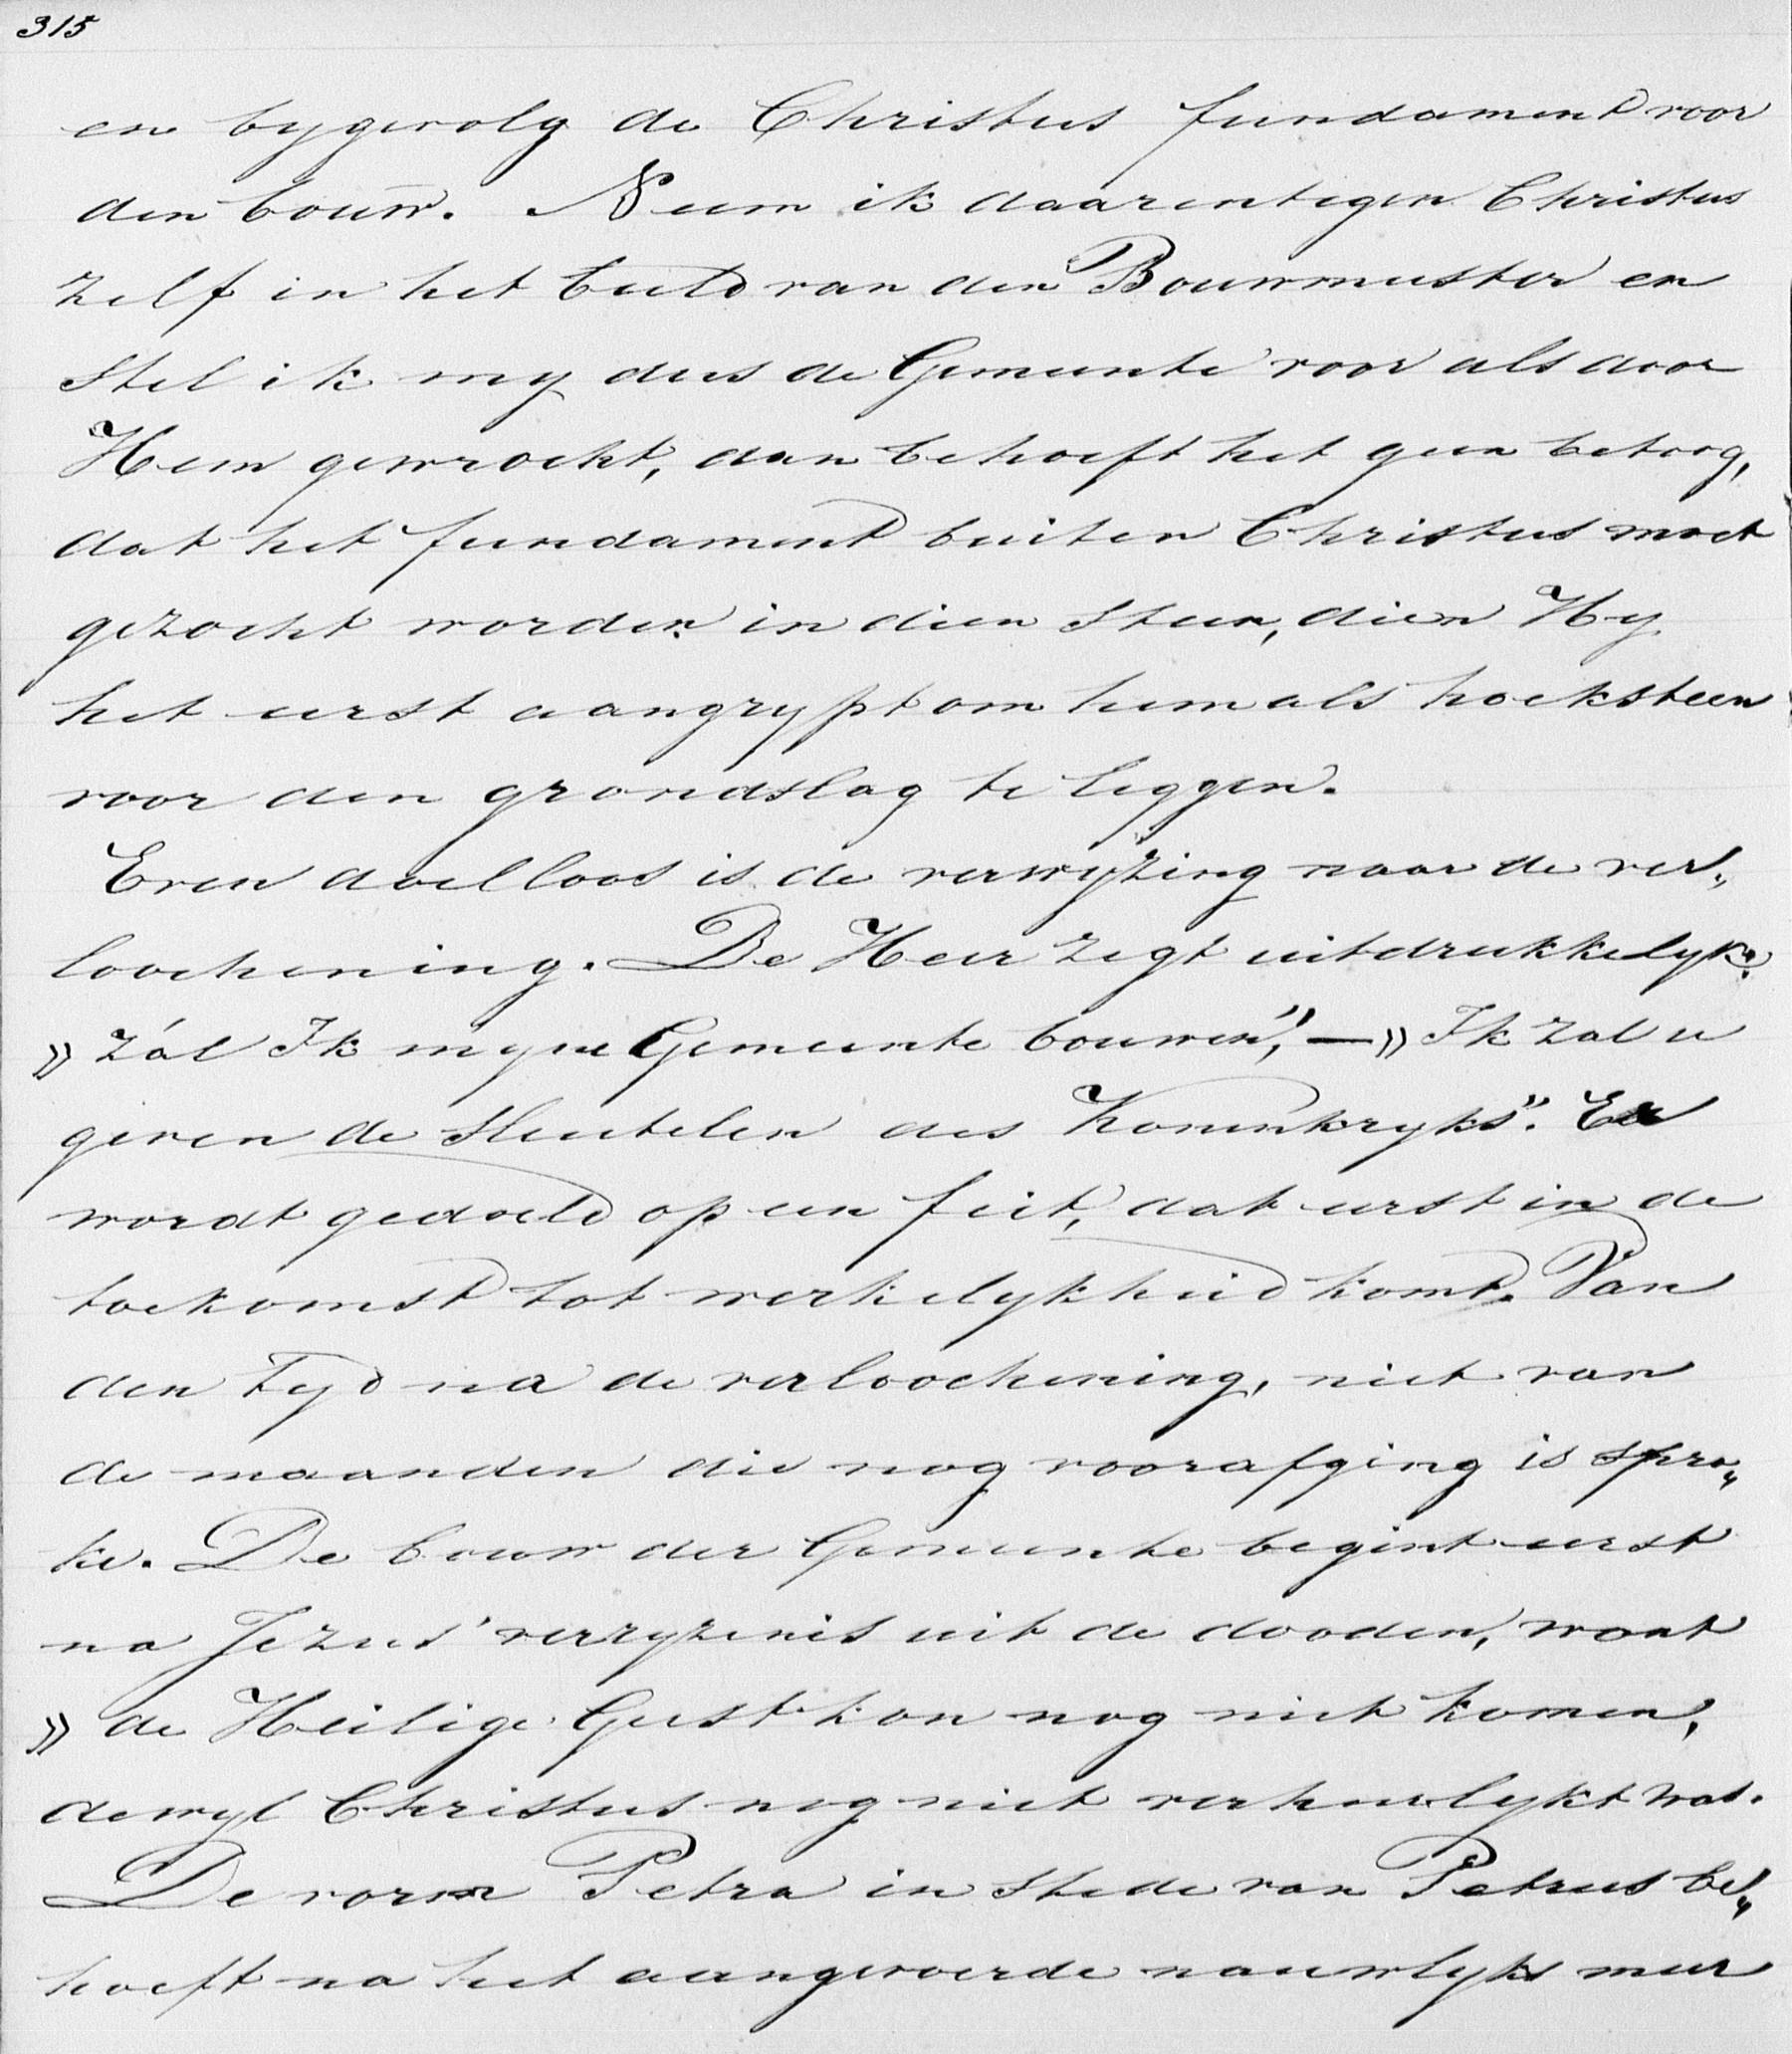 315
en bygevolg de Christus fundament voor
den bouw. Neem ik daarentegen Christus
zelf in het beeld van den Bouwmeester en
stel ik my dus de Gemeente voor als door
Hem gewrocht, dan behoeft het geen betoog,
dat het fundament buiten Christus moet
gezocht worden in dien steen, dien Hy
het eerst aangrypt om hem als hoeksteen
voor den grondslag te leggen.
Even doelloos is de verwyzing naar de ver„
loochening. De Heer zegt uitdrukkelyk:
» zál Ik myne Gemeente bouwen", — » Ik zal u
geven de sleutelen des Koninkryks". Er
wordt gedoeld op een feit, dat eerst in de
toekomst tot werkelykheid komt. Van
den tyd na de verloochening, niet van
de maanden die nog voorafging is spra„
ke. De bouw der Gemeente begint eerst
na Jezus' verryzenis uit de dooden, want
» de Heilige Geest kon nog niet komen,
dewyl Christus nog niet verheerlykt was.
De vorm Petra in stede van Petrus be„
hoeft na het aangevoerde nauwlyks meer